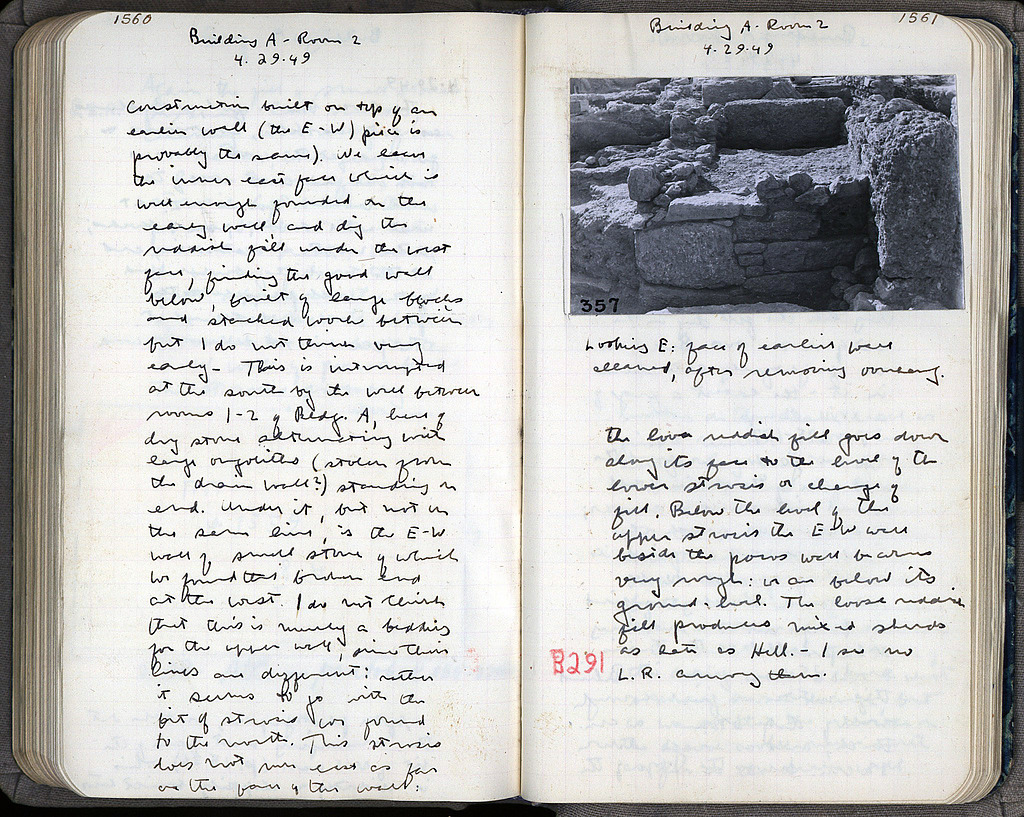 1560
Building A - Room 2
4.29.49
Construction built on top of an
earlier wall (the E-W) piece is
probably the same). We leave
the inner east face which is
well enough founded on the
early wall, and dig the
reddish fill under the west
face, finding the good wall
below, built of large blocks
and stacked work between
but I do not think very
early - This is interrupted
at the south by the wall between
rooms 1-2 of Bldg. A, here of
dry stone alternating with
large orgoliths (stolen from
the drain wall?) standing on
end. Under it, but not in
the same line, is the E-W
wall of small stone of which
we found the broken end
at the west. I do not think
that this is merely a bedding
for the upper wall, since their
lines are different: rather
it seems to go with the
bit of strosis we found
to the north. This strosis
does not run east as far
as the face of the wall:
1561
Building A - Room 2
4.29.49
357
Looking E: face of earlier wall
cleaned, after removing overhang.
the loose reddish fill goes down
along its face to the level of the
lower strosis or change of
fill. Below the level of the
upper strosis the E-W wall
beside the poros wall becomes
very rough: we are below its
ground-level. The loose reddish
fill produces mixed sherds
as late as Hell. - I see no
L.R. among them.
B291